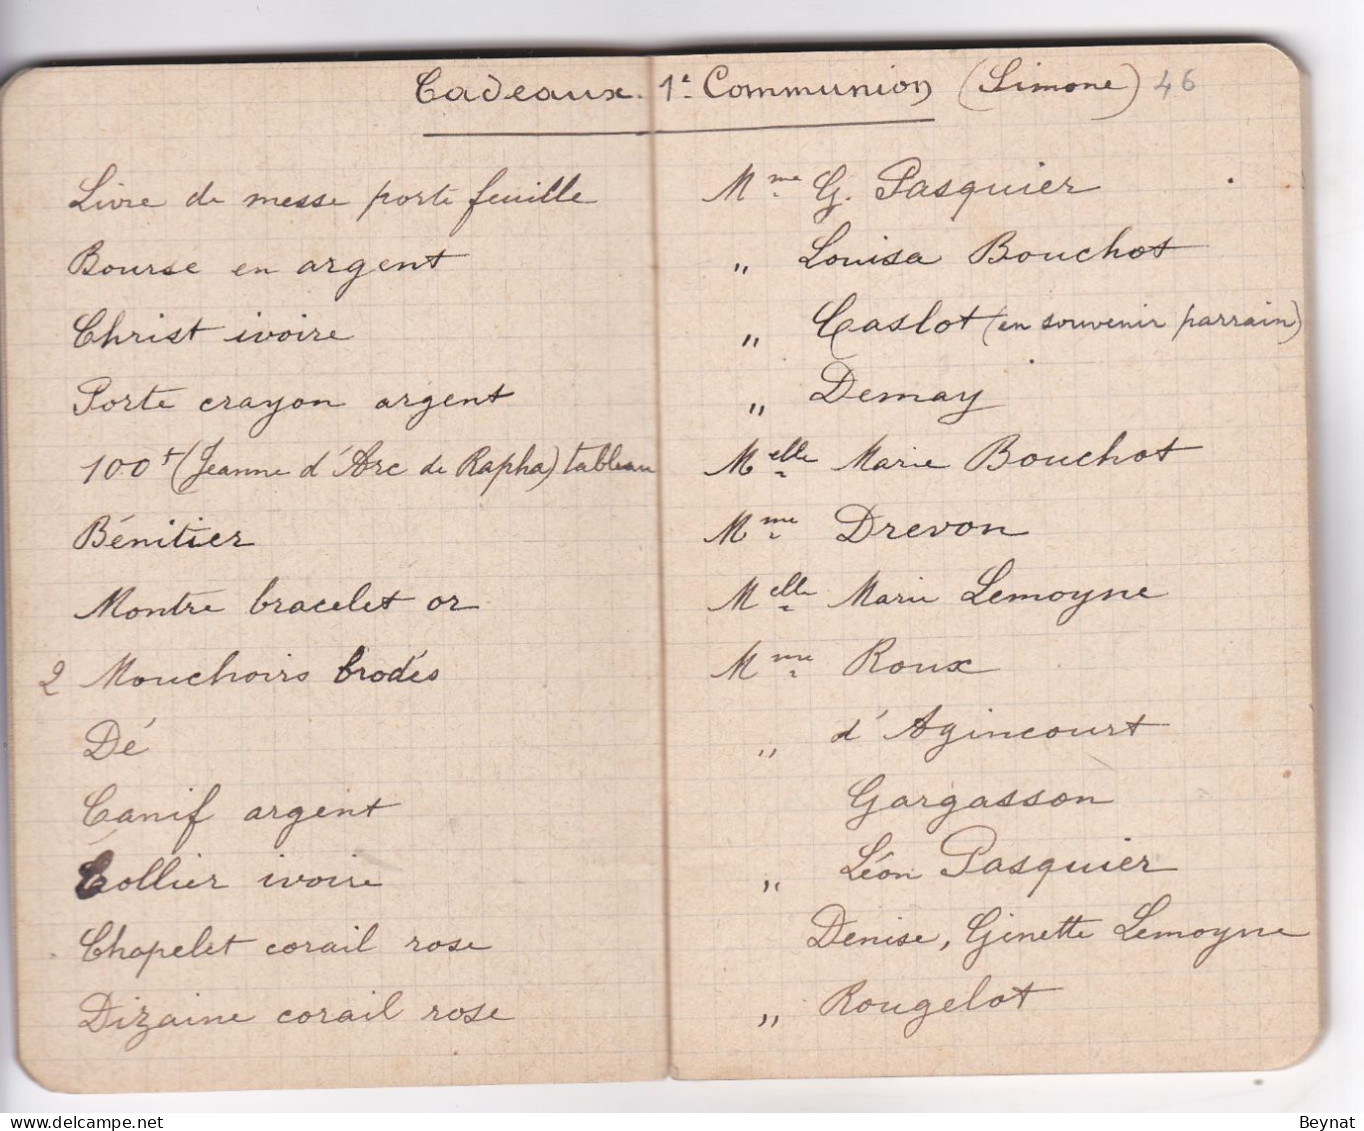 Cadeaux. 1e Communion (Simone) 46
Livre de messe porte feuille Mme G. Pasquier
Bourse en argent " Louisa Bouchot
Christ ivoire " Caslot (en souvenir parrain)
Porte crayon argent " Demay
100f (Jeanne d'Arc de Rapha) tableau Melle Marie Bouchot
Bénitier Mme Drevon
Montre bracelet or Melle Marie Lemoyne
2 Mouchoirs brodés Mme Roux
Dé " d'Agincourt
Canif argent Gargasson
Collier ivoire " Léon Pasquier
Chapelet corail rose Denise, Ginette Lemoyne
Dizaine corail rose " Rougelot
Beynat